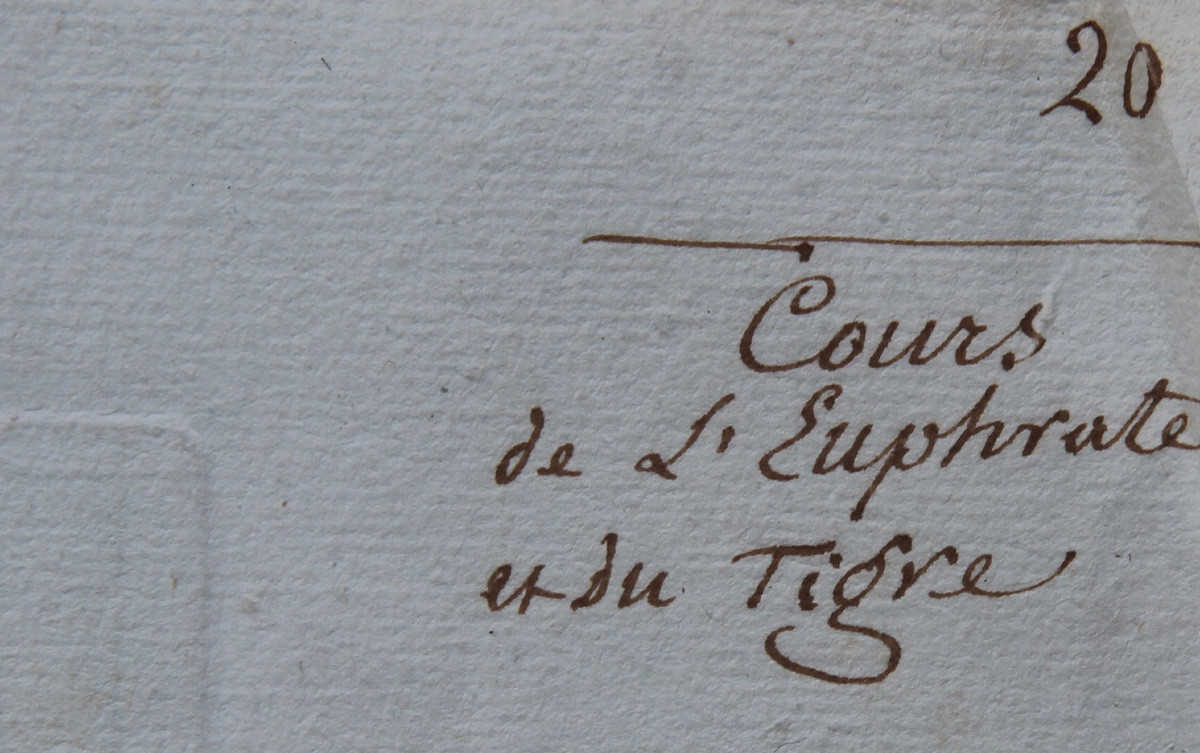 20
Cours
de L'Euphrate
et du Tigre